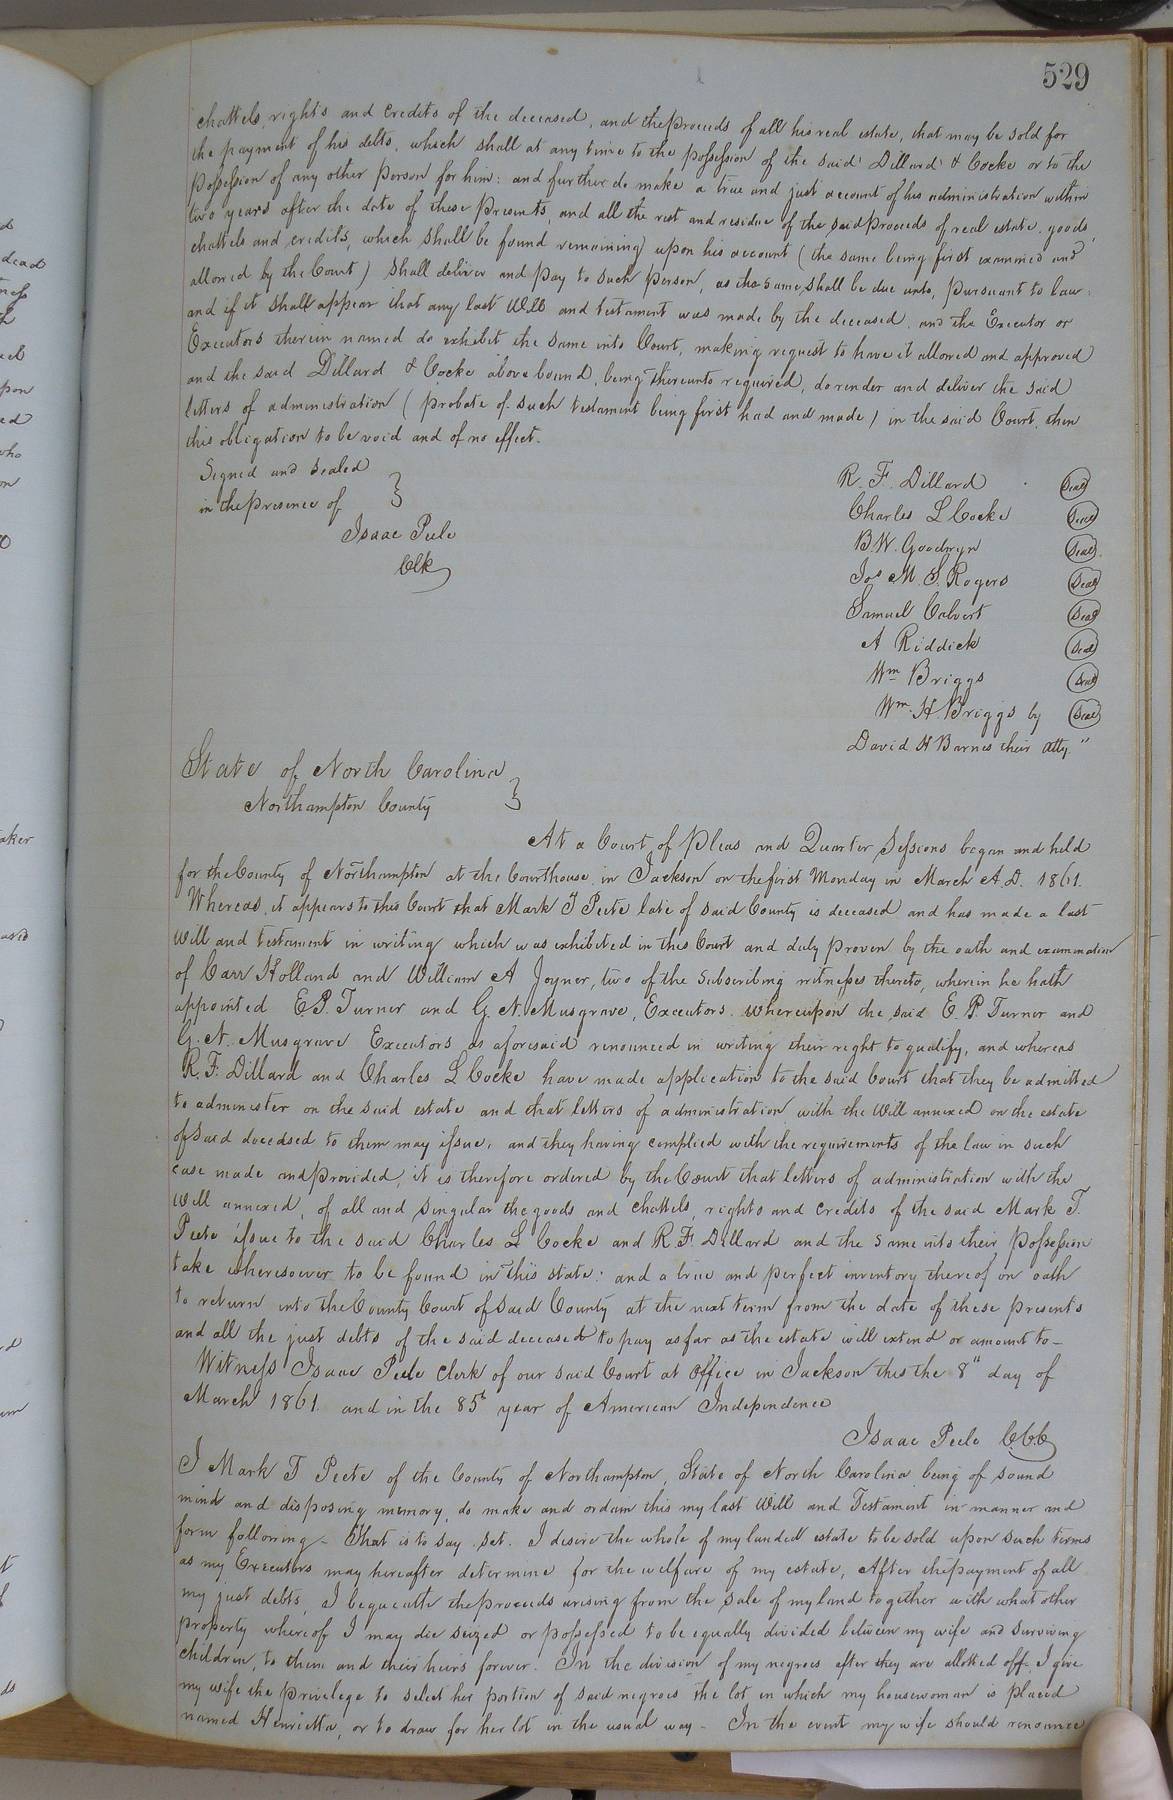 529
chattels, rights and credits of the deceased, and the proceeds of all his real estate, that may be sold for
the payment of his debts, which shall at any time to the possession of the said Dillard & Cocke or to the
possession of any other person for him: and further do make a true and just account of his administration within
two years after the date of these presents, and all the rest and residue of the said proceeds of real estate, goods,
chattels and credits, which shall be found remaining upon his account (the same being first examined and
allowed by the Court) shall deliver and pay to such person, as the same shall be due unto, pursuant to law.
and if it shall appear that any last Will and testament was made by the deceased, and the Executor or
Executors therein named do exhibit the same into Court, making request to have it allowed and approved
and the said Dillard & Cocke above bound, being thereunto required, do render and deliver the said
letters of administration (probate of such testament being first had and made) in the said Court, then
this obligation to be void and of no effect.
Signed and sealed
in the presence of
Isaac Peele
Clk
R. F. Dillard Seal
Charles L Cocke Seal
B. W. Goodwyn Seal
Jos M. S. Rogers Seal
Samuel Calvert Seal
A Riddick Seal
Wm Briggs Seal
Wm H Briggs by Seal
David H Barnes their atty"
State of North Carolina
Northampton County
At a Court of Pleas and Quarter Sessions began and held
for the County of Northampton at the Courthouse in Jackson on the first Monday in March A.D. 1861.
Whereas, it appears to this Court that Mark T Peete late of said County is deceased and has made a last
Will and testament in writing which was exhibited in this Court and duly proven by the oath and examination
of Carr Holland and William A Joyner, two of the subscribing witnesses thereto, wherein he hath
appointed E. P. Turner and G. N. Musgrave, Executors. whereupon the said E. P. Turner and
G. N. Musgrave Executors as aforesaid renounced in writing their right to qualify, and whereas
R. F. Dillard and Charles L Cocke have made application to the said Court that they be admitted
to administer on the said estate and that letters of administration with the Will annexed on the estate
of said deceased to them may issue, and they having complied with the requirements of the law in such
case made and provided, it is therefore ordered by the Court that letters of administration with the
Will annexed, of all and singular the goods and chattels, rights and credits of the said Mark T.
Peete issue to the said Charles L Cocke and R. F. Dillard and the same into their possession
take wheresoever to be found in this state: and a true and perfect inventory thereof on oath
to return into the County Court of said County at the next term from the date of these presents
and all the just debts of the said deceased to pay as far as the estate will extend or amount to -
Witness Isaac Peele Clerk of our said Court at Office in Jackson this the 8" day of
March 1861. and in the 85 year of American Independence
Isaac Peele CCC
I Mark T Peete of the County of Northampton, State of North Carolina being of sound
mind and disposing memory, do make and ordain this my last Will and Testament in manner and
form following - That is to say. I desire the whole of my landed estate to be sold upon such terms
as my Executors may hereafter determine for the welfare of my estate, After the payment of all
my just debts, I bequeath the proceeds arising from the sale of my land together with what other
property whereof I may die seized or possessed to be equally divided between my wife and surviving
children, to them and their heirs forever. In the division of my negroes after they are allotted off I give
my wife the privilege to select her portion of said negroes the lot in which my housewoman is placed
named Henrietta, or to draw for her lot in the usual way - In the event my wife should renounce